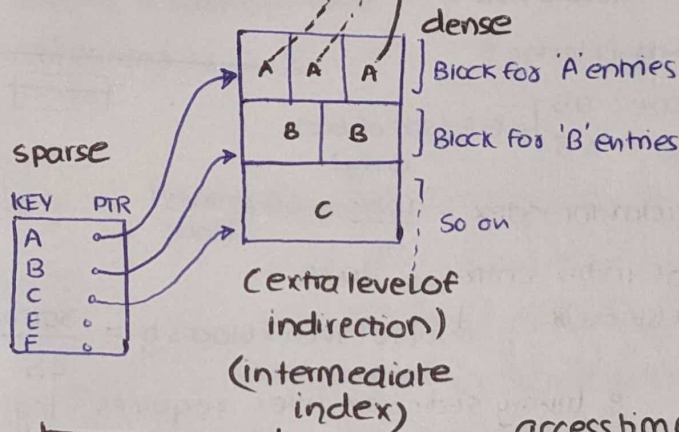 dense
A A A
Block for 'A' entries
B B
Block for 'B' entries
C
So on
sparse
KEY PTR
A
B
C
E
F
(extra level of
indirection)
(intermediate
index)
access time